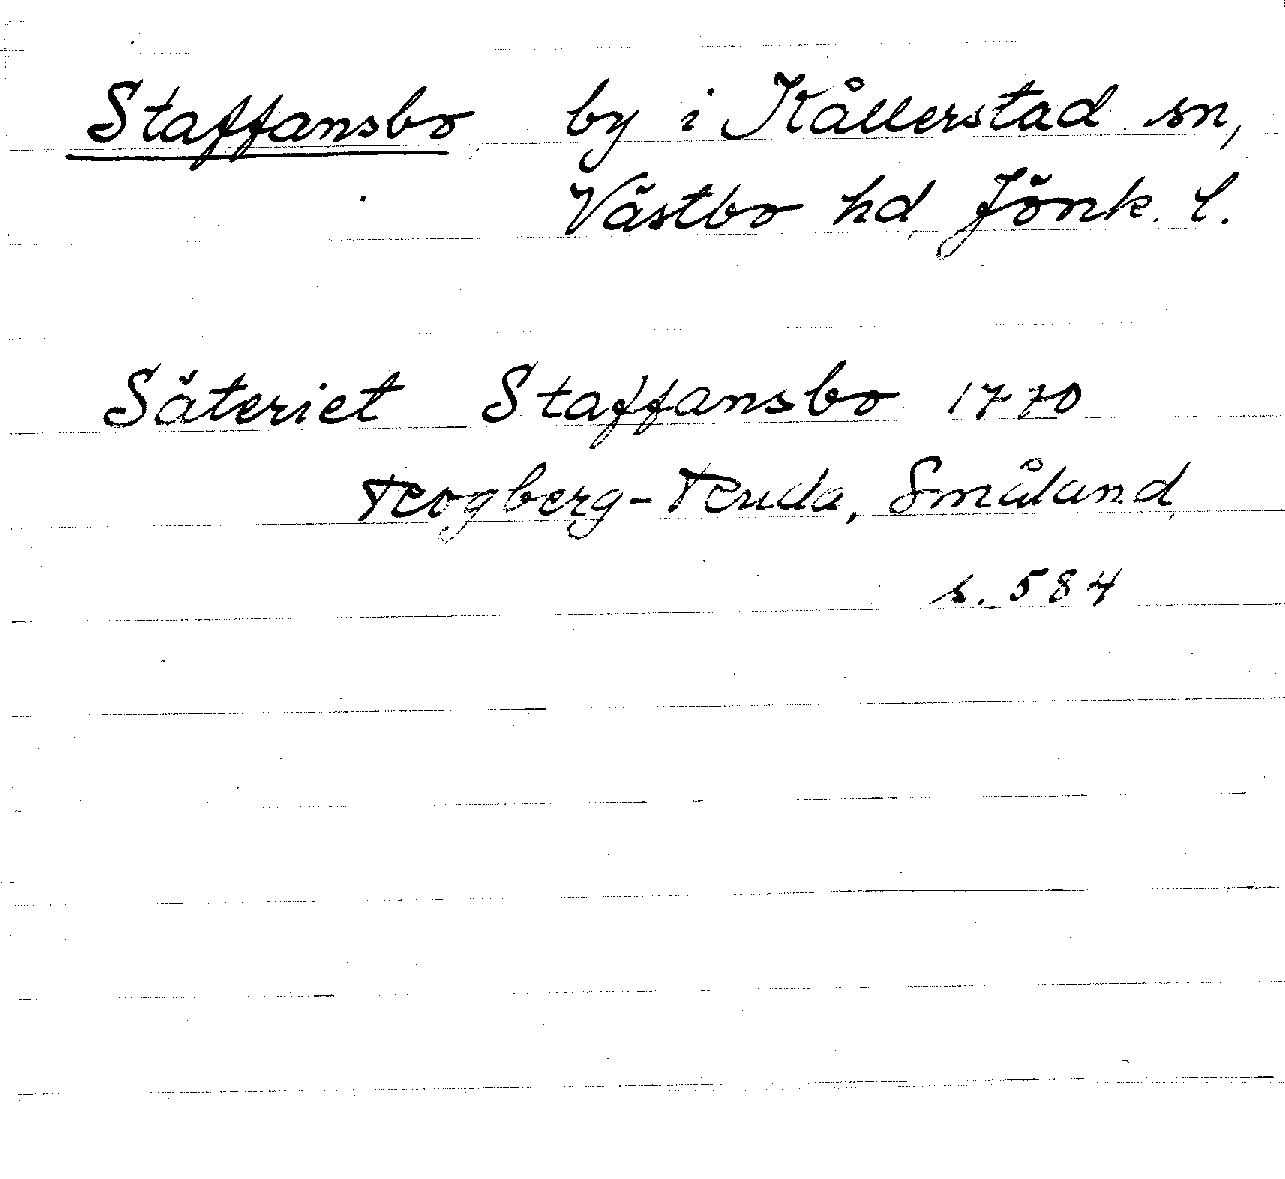 Staffansbo by i Kållerstad sn,
Västbo hd, Jönk. l.
Säteriet Staffansbo 1770
Rogberg-Ruda, Småland,
s. 584